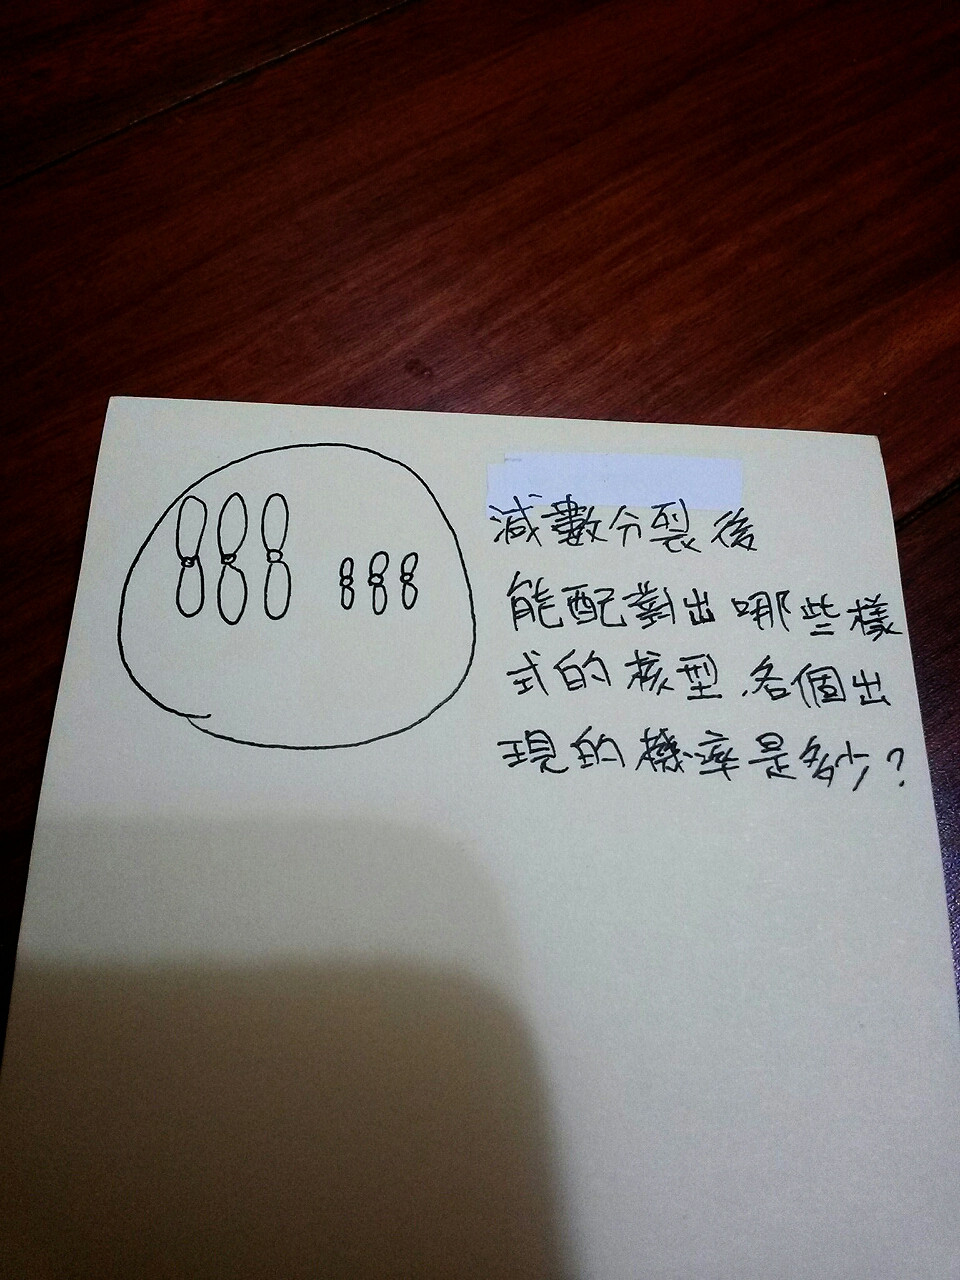 減數分裂後
能配對出哪些樣
式的核型,各個出
現的機率是多少?